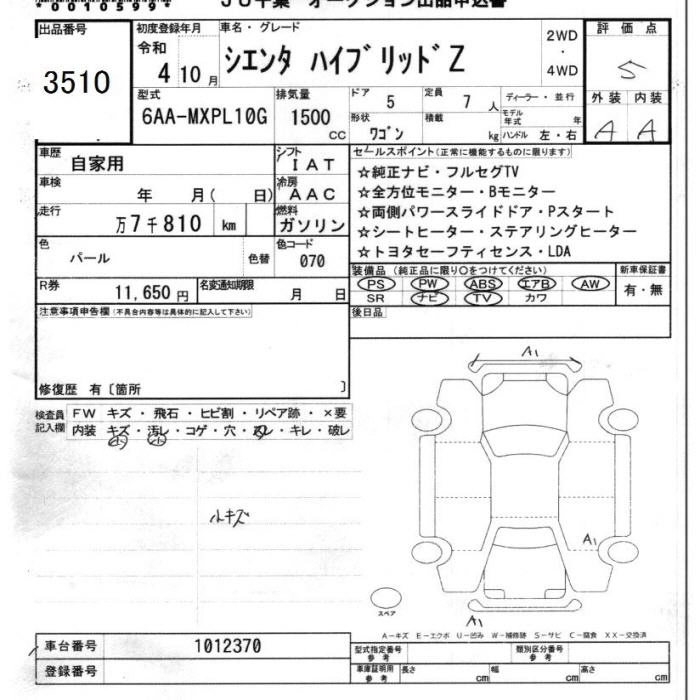 00010599
JU千葉 オークション出品申込書
出品番号
3510
初度登録年月
令和
4 10 月
車名・グレード
シエンタ ハイブリッドZ
2WD
・
4WD
評価点
S
外装 内装
A A
型式
6AA-MXPL10G
排気量
1500
CC
ドア
5
定員
7 人
ディーラー・並行
形状
ワゴン
積載
kg
モデル年式
年
ハンドル 左・右
車歴
自家用
シフト
IAT
車検
年 月( 日)
冷房
AAC
走行
万7千810 km
燃料
ガソリン
色
パール
色替
色コード
070
R券
11,650 円
名変通知期限
月 日
セールスポイント(正常に機能するものに限ります)
☆純正ナビ・フルセグTV
☆全方位モニター・Bモニター
☆両側パワースライドドア・Pスタート
☆シートヒーター・ステアリングヒーター
☆トヨタセーフティセンス・LDA
装備品(純正品に限り○をつけてください)
PS PW ABS エアB AW
SR ナビ TV カワ
新車保証書
有・無
後日品
注意事項申告欄(不具合内容等は具体的に記入して下さい)
修復歴 有〔箇所 〕
検査員記入欄
FW キズ・飛石・ヒビ割・リペア跡・×要
内装 キズ・汚レ・コゲ・穴・スレ・キレ・破レ
小 小
ルキズ
A1
A1
A1
スペア
A-キズ E-エクボ U-凹み W-補修跡 S-サビ C-腐食 XX-交換済
車台番号
1012370
登録番号
型式指定番号
参考
類別区分番号
参考
車庫証明用
参考
長さ cm 幅 cm 高さ cm